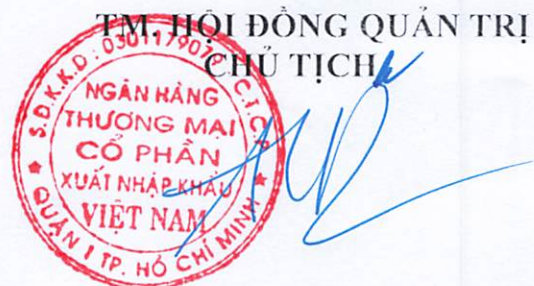 TM. HỘI ĐỒNG QUẢN TRỊ
CHỦ TỊCH
S.Đ.K.K.D: 0301179079 - C.T.C.P
NGÂN HÀNG
THƯƠNG MẠI
CỔ PHẦN
XUẤT NHẬP KHẨU
VIỆT NAM
QUẬN 1 TP. HỒ CHÍ MINH